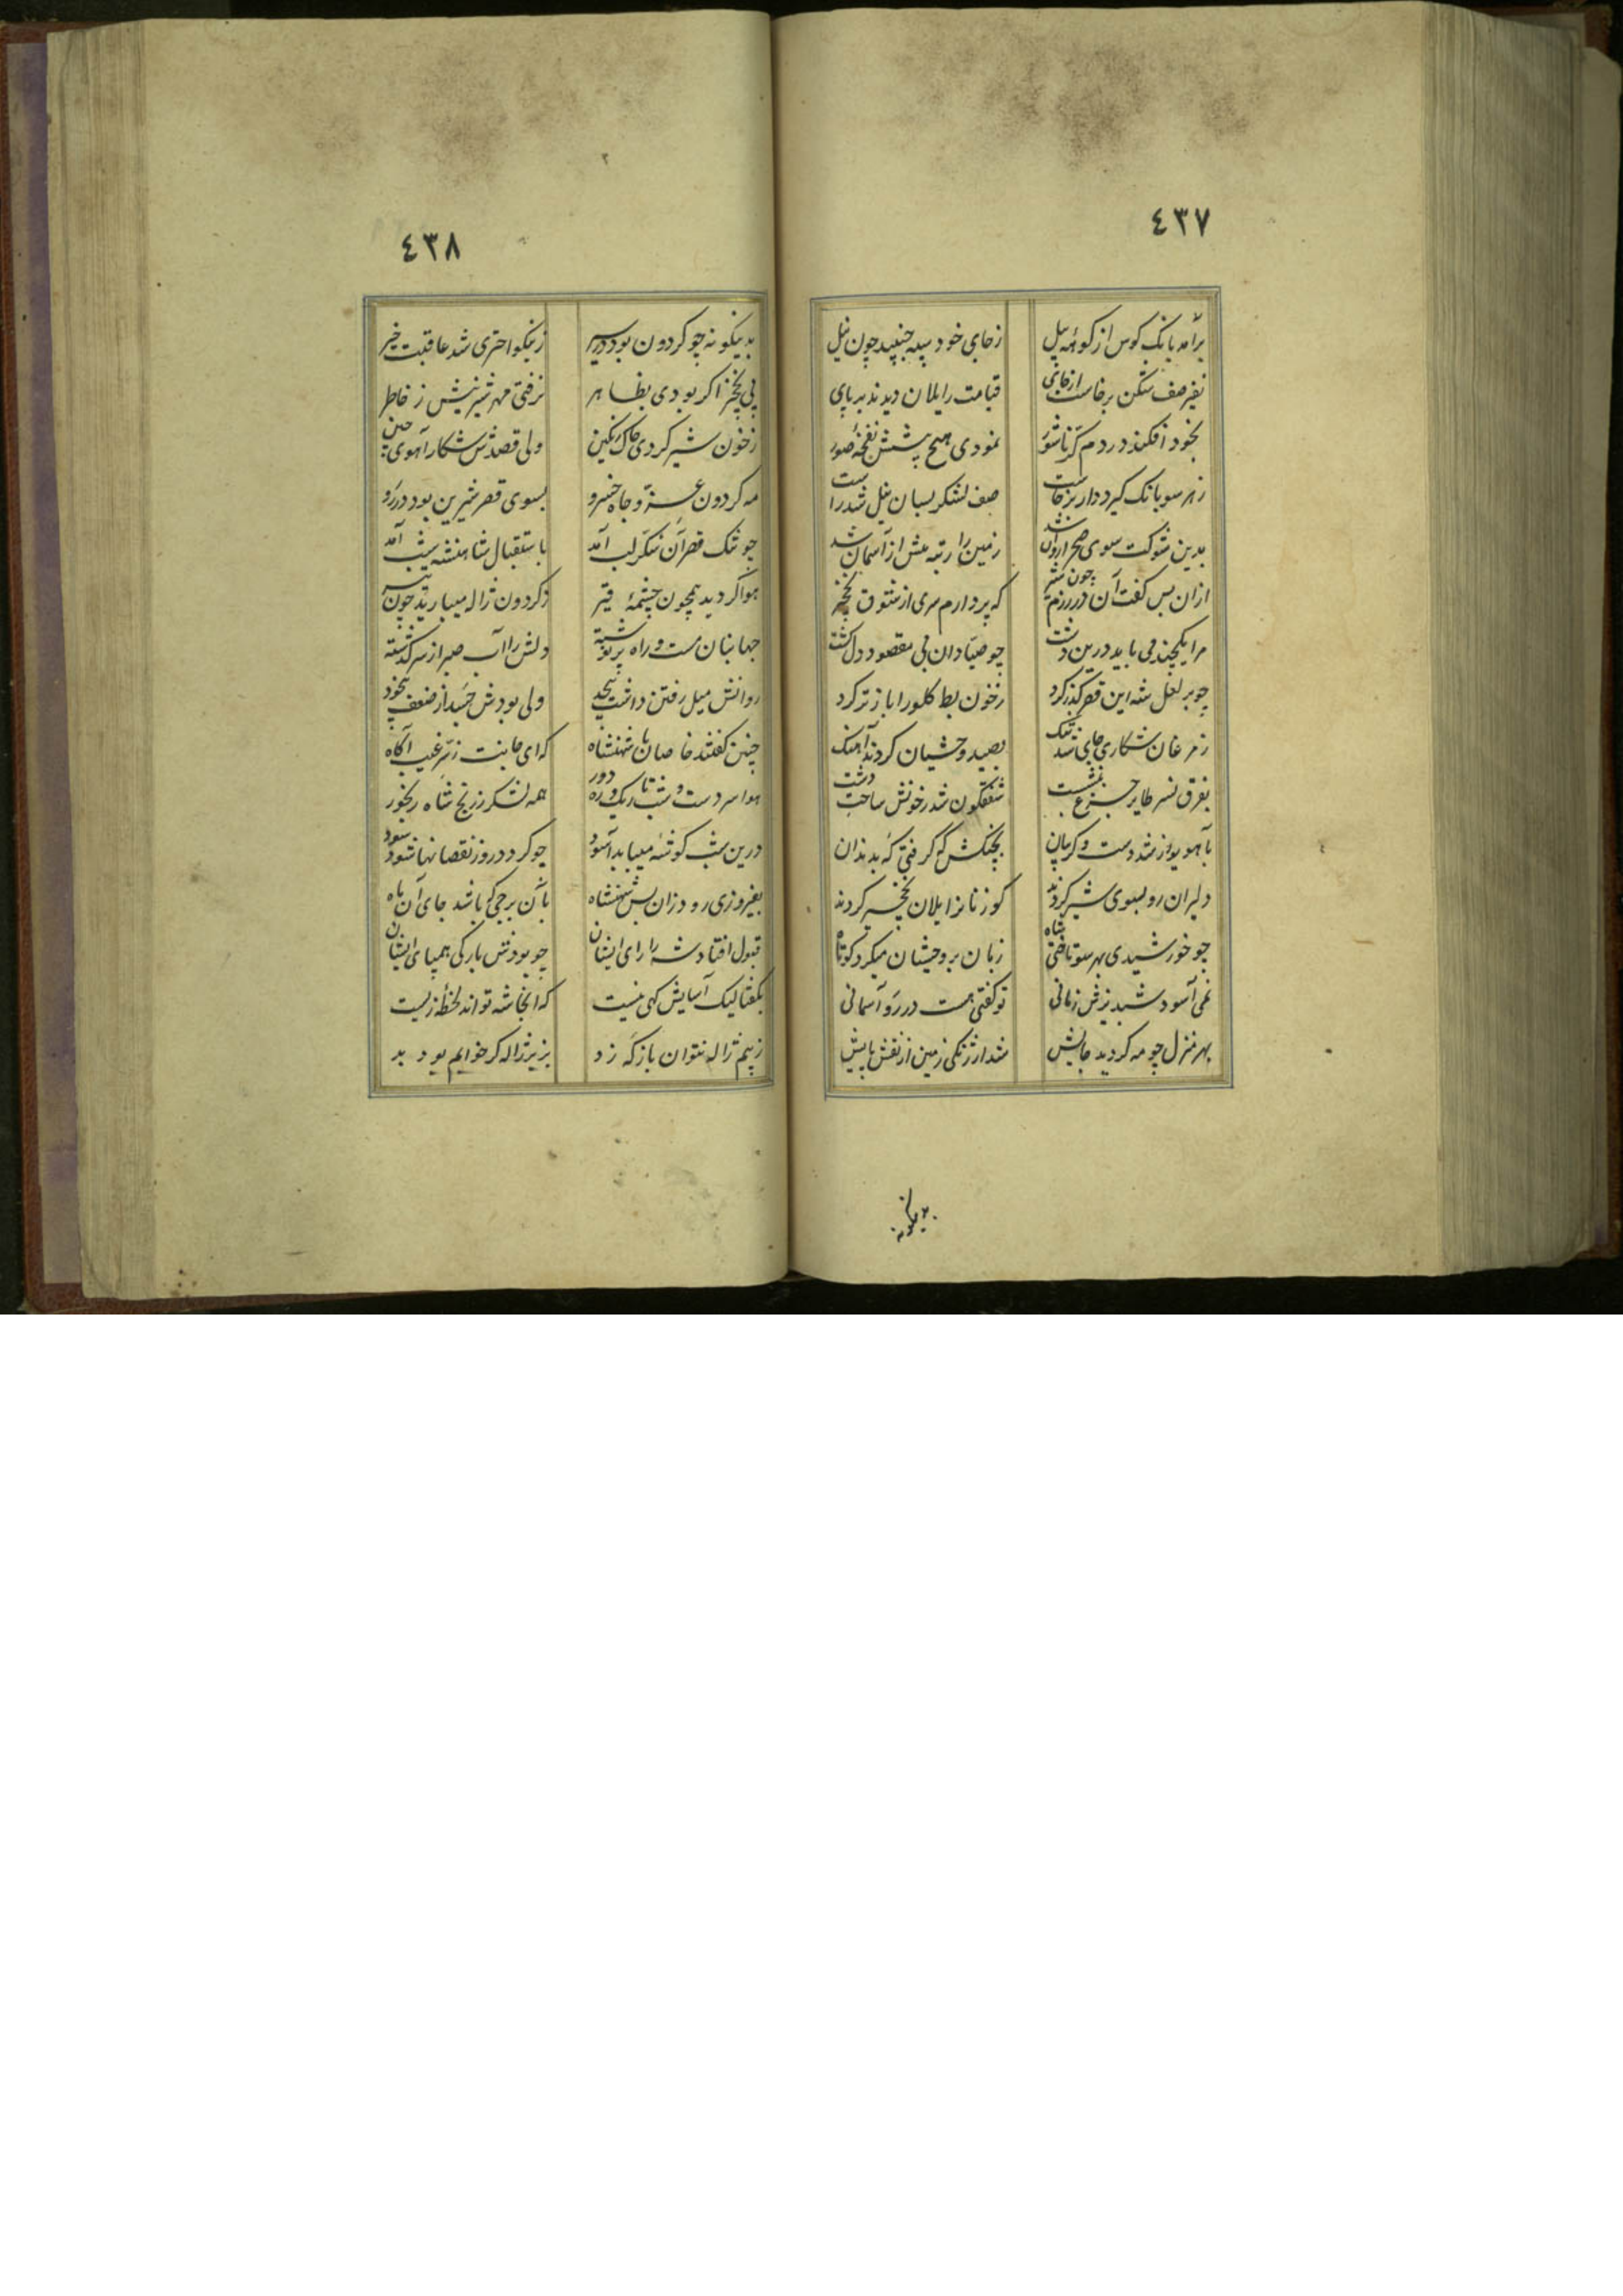 ٤٣٧
برآمد بانک کوس از کوهه پیل زجای خود سپه جنبید چون نیل
نفیر صف شکن برخاست از جای قیامت را یلان دیدند بر پای
بخود افکند در دم کرنا شور نمودی هیچ پیشش نفخهٔ صور
زهر سو بانک کیر و دار برخاست صف لشکر بسان نیل شد راست
بدین شوکت سوی صحرا روان شد زمین را رتبه بیش از آسمان شد
ازان پس گفت آن در رزم چون شیر که پردازم سری از شوق نخجیر
مرا یکچند می باید درین دشت چو صیادان بی مقصود دل کشت
چو بر لعل شه این قصه کذر کرد زخون بط کلو را باز تر کرد
زمرغان شکاری جای شد تنک بصید وحشیان کردند آهنک
بفرق نسر طایر چرغ بنشست شفقکون شد زخونش ساحت دشت
بآهو یوز شد دست و کریبان بچنکش که کرفتی که بدندان
دلیران رو بسوی شیر کردند کوزنانرا یلان نخجیر کردند
چو خورشیدی بهر سو تاختی شاه زبان بر وحشیان میکرد کوتاه
نمی آسود شبدیزش زمانی تو کفتی هست در رو آسمانی
بهر منزل چو مه کردید جایش شد ارژنکی زمین از نقش پایش
بدینکونه
٤٣٨
بدینکونه چو کردون بود در سیر زنیکو اختری شد عاقبت خیر
پی نخجیر اکر بودی بظاهر نرفتی مهر شیرینش ز خاطر
زخون شیر کردی خاک رنکین ولی قصدش شکار آهوی چین
مه کردون عز و جاه خسرو بسوی قصر شیرین بود در رو
چو تنک قصر آن شکر لب آمد باستقبال شاهنشه شب آمد
هوا کردید همچون چشمهٔ قیر زکردون ژاله میبارید چون تیر
جهانبان مست و راه پر نوشته دلش را آب صبر از سر کذشته
روانش میل رفتن داشت بیحد ولی بودش جسد از ضعف بیخود
چنین کفتند خاصان با شهنشاه که ای جانت زسر غیب آکاه
هوا سردست و شب تاریک و ره دور همه لشکر زرنج شاه رنجور
درین شب کوشهٔ میباید آسود چو کردد روز نقصانها شود سود
بفیروزی رود زان پس شهنشاه بآن برجی که باشد جای آن ماه
قبول افتاد شه را رای ایشان چو بودش بارکی همپای ایشان
بکفتا لیک آسایش کهی نیست که اینجا شه تواند لحظهٔ زیست
زبیم ژاله نتوان بارکه زد بزیر ژاله کر خوابم بود بد